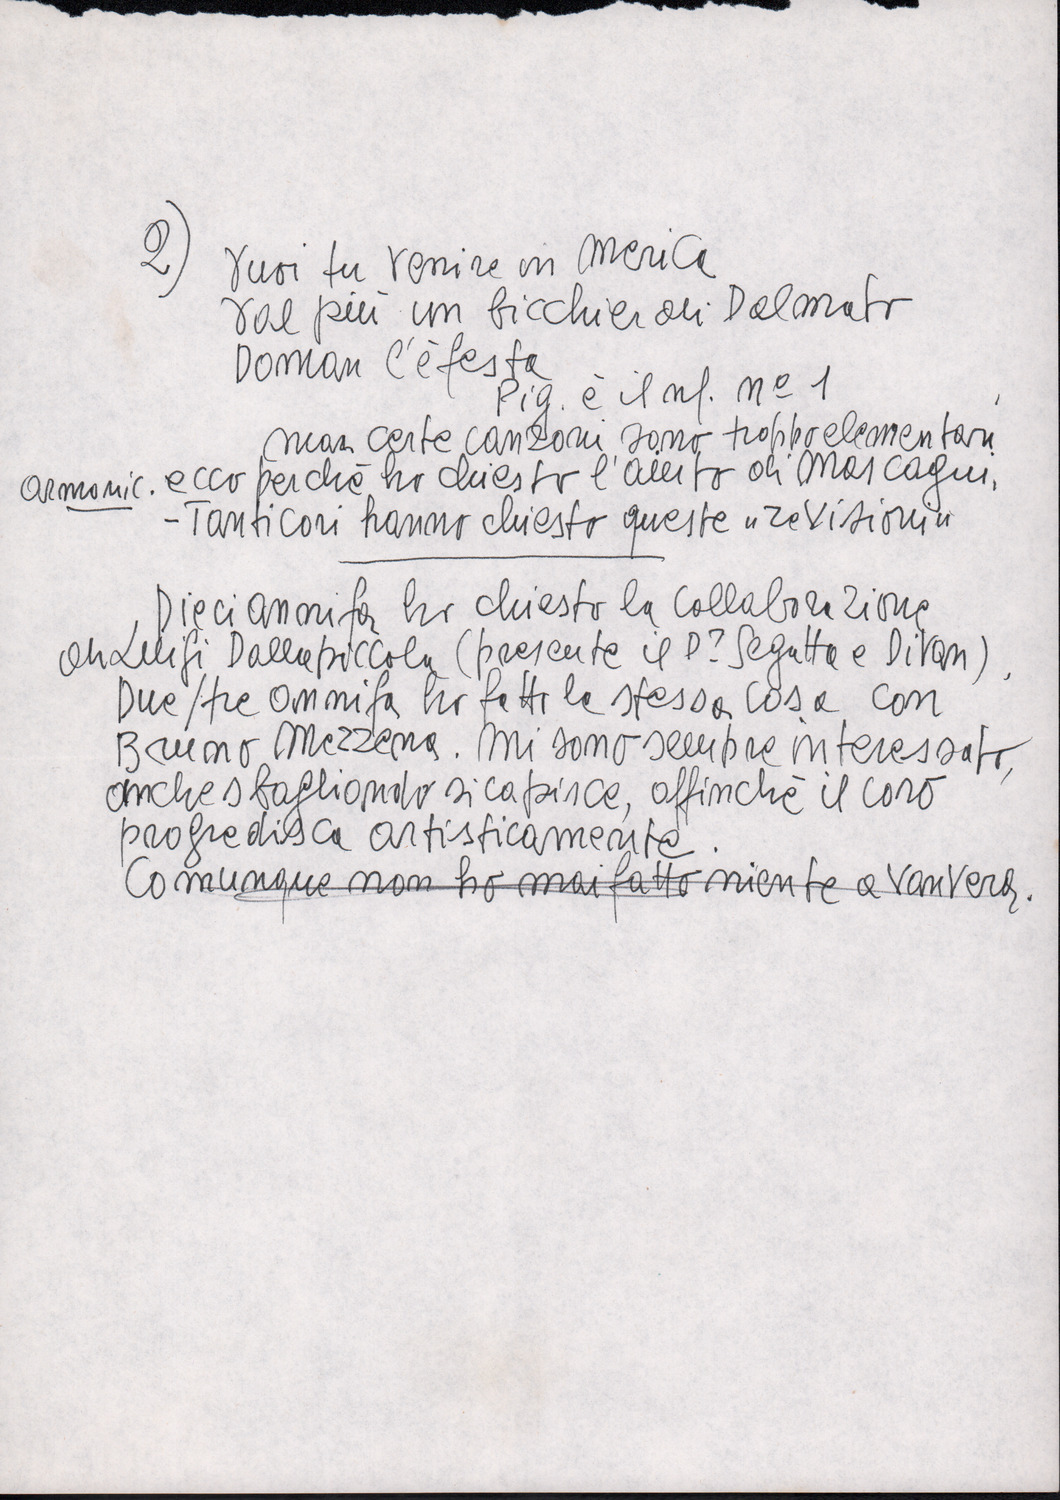 2) Vuoi tu venire in Merica
Val più un bicchier di Dalmato
Doman l'è festa
Pig. è il nº 1
ma certe canzoni sono troppo elementari
armonic. ecco perchè ho chiesto l'aiuto di Mascagni.
-Tanti cori hanno chiesto queste "revisioni"
Dieci anni fa ho chiesto la collaborazione
di Luigi Dallapiccola (presente il D? Segatta e Divan).
Due/tre anni fa ho fatto la stessa cosa con
Bruno Mezzena. Mi sono sempre interessato,
anche sbagliando si capisce, affinchè il coro
progredisca artisticamente.
Comunque non ho mai fatto niente a vanvera.